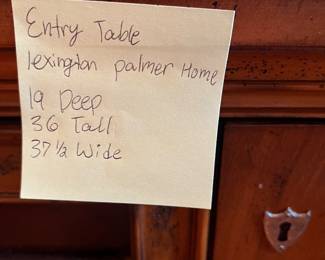 Entry Table
lexington palmer Home
19 Deep
36 Tall
37 1/2 Wide